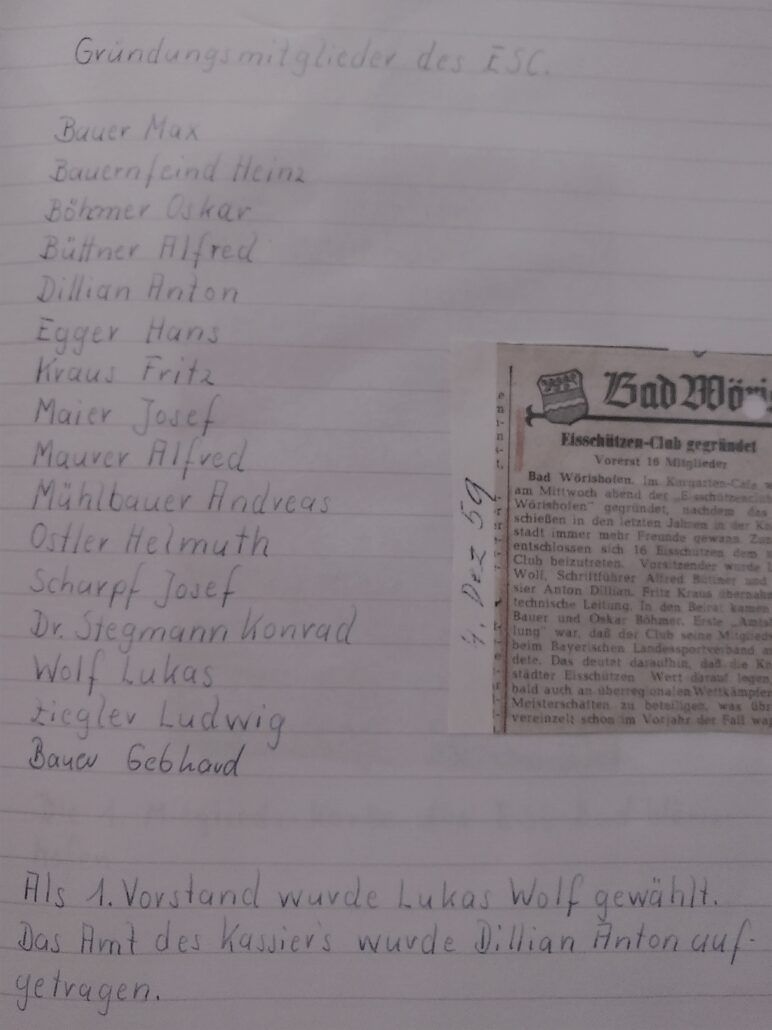 Gründungsmitglieder des ESC.
Bauer Max
Bauernfeind Heinz
Böhmer Oskar
Büttner Alfred
Dillian Anton
Egger Hans
Kraus Fritz
Maier Josef
Maurer Alfred
Mühlbauer Andreas
Ostler Helmuth
Scharpf Josef
Dr. Stegmann Konrad
Wolf Lukas
Ziegler Ludwig
Bauer Gebhard
4. Dez 59
Bad Wöris
Eisschützen-Club gegründet
Vorerst 16 Mitglieder
Bad Wörishofen. Im Kurgarten-Cafe w
am Mittwoch abend der „Eisschützenclub
Wörishofen“ gegründet, nachdem das
schießen in den letzten Jahren in der Kn
stadt immer mehr Freunde gewann. Zun
entschlossen sich 16 Eisschützen dem
Club beizutreten. Vorsitzender wurde L
Wolf, Schriftführer Alfred Büttner und
sier Anton Dillian. Fritz Kraus übernahm
technische Leitung. In den Beirat kamen
Bauer und Oskar Böhmer. Erste „Amtsh
lung“ war, daß der Club seine Mitglieder
beim Bayerischen Landessportverband an
dete. Das deutet daraufhin, daß die Kn
städter Eisschützen Wert darauf legen,
bald auch an überregionalen Wettkämpfen
Meisterschaften zu beteiligen, was übr
vereinzelt schon im Vorjahr der Fall war
Als 1. Vorstand wurde Lukas Wolf gewählt.
Das Amt des Kassiers wurde Dillian Anton auf-
getragen.